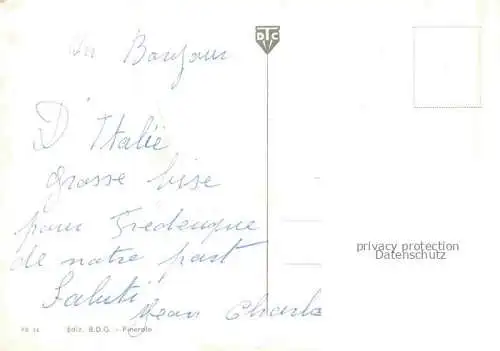 Un Bonjour
D'Italie
grosse bise
pour Frederique
de notre part
Saluti
Jean Charle
DTC
privacy protection
Datenschutz
Ediz. B.D.G. - Pinerolo